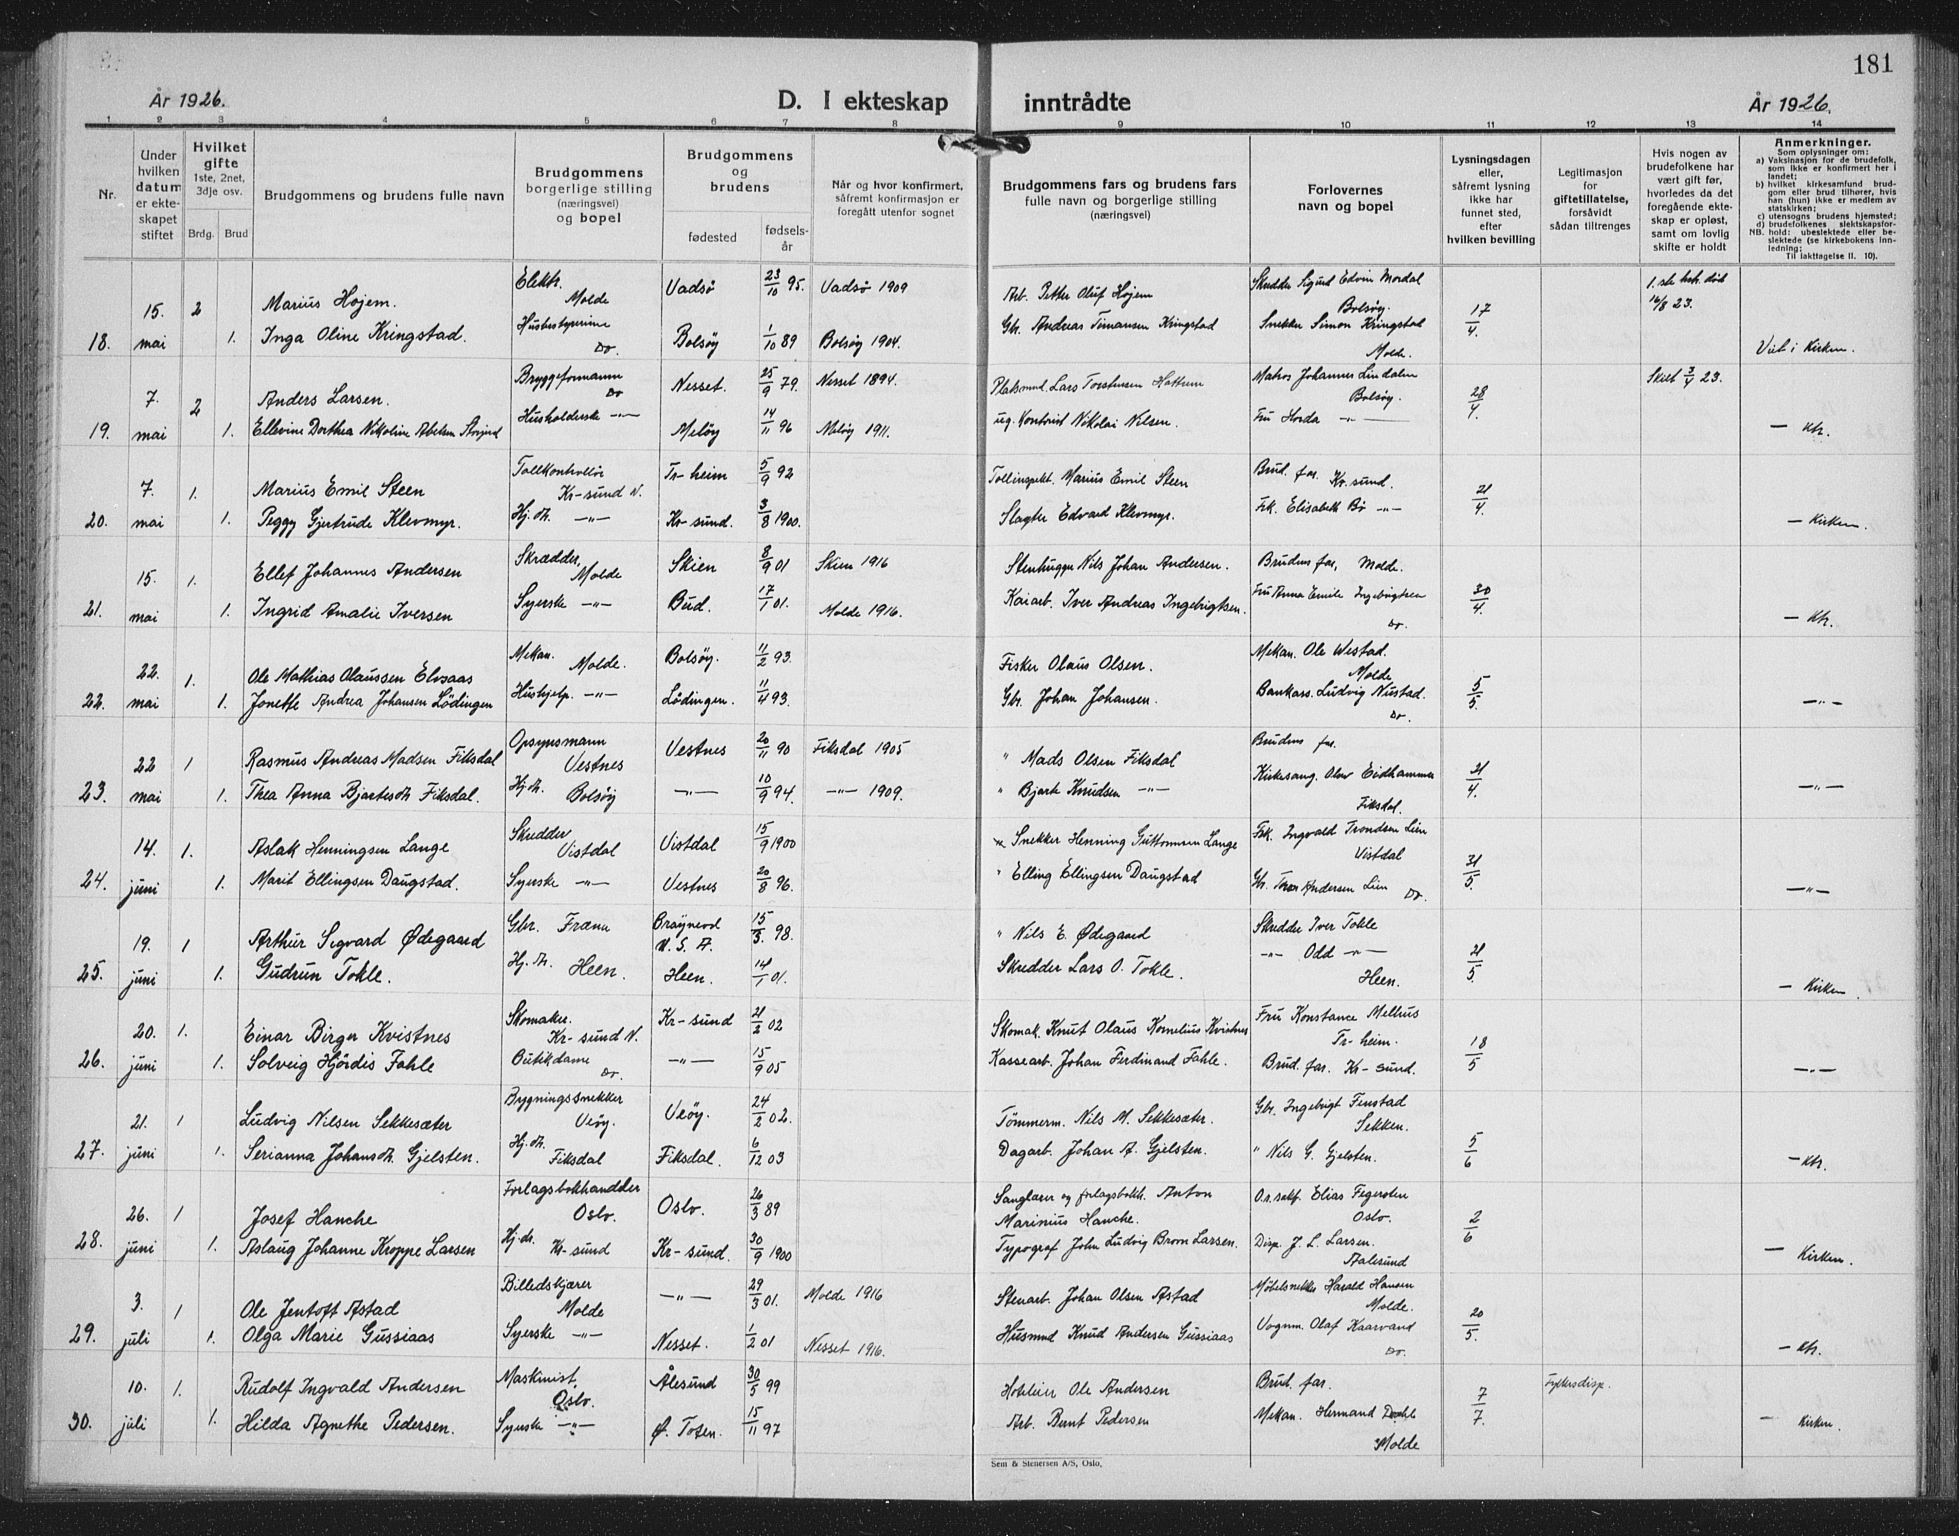 181
År 1926.
D. I ekteskap inntrådte
År 1926.
1 2 3 4 5 6 7 8 9 10 11 12 13 14
Nr.
Under hvilken datum er ekteskapet stiftet
Hvilket gifte
1ste, 2net, 3dje osv.
Brdg. Brud
Brudgommens og brudens fulle navn
Brudgommens borgerlige stilling (næringsvei) og bopel
Brudgommens og brudens
fødested
fødselsår
Når og hvor konfirmert, såfremt konfirmasjon er foregått utenfor sognet
Brudgommens fars og brudens fars fulle navn og borgerlige stilling (næringsvei)
Forlovernes navn og bopel
Lysningsdagen eller, såfremt lysning ikke har funnet sted, efter hvilken bevilling
Legitimasjon for giftetillatelse, forsåvidt sådan tiltrenges
Hvis nogen av brudefolkene har vært gift før, hvorledes da det foregående ekteskap er opløst, samt om lovlig skifte er holdt
Anmerkninger.
Som oplysninger om:
a) Vaksinasjon for de brudefolk, som ikke er konfirmert her i landet;
b) hvilket kirkesamfund brudgom eller brud tilhører, hvis han (hun) ikke er medlem av statskirken;
c) utensogns brudens hjemsted;
d) brudefolkenes slektskapsforhold: ubeslektede eller beslektede (se kirkebokens innledning;
NB. Til iakttagelse II. 10).
15. 2 Marius Hojem. Elektr. Molde Vadsö 23/10 95. Vadsö 1909 Arb. Petter Oluf Hojem Skredder Sigurd Edvin Mordal Bolsöy. 17/4 1.ste hstr. död 16/8 23.
18. mai 1. Inga Oline Kringstad. Husbestyrerinne Do. Bolsöy 1/10 89 Bolsöy 1904. Gbr. Andreas Timansen Kringstad Snekker Simon Kringstad Molde. Viet i Kirken.
7. 2 Anders Larsen. Bryggeformann Do Nesset. 25/9 79. Nesset 1894. Platsmnd. Lars Torstensen Hattrem Matros Johannes Lindalen Bolsöy. 28/4. Skilt 3/4 23.
19. mai 1. Ellevine Dorthea Nikoline Abelsen Husholderske -"- Melöy 14/11 96 Melöy 1911. ug. Kontorist Nikolai Nilsen. Fru Horda -"- — Ktr.
7. 1. Marius Emil Steen Tollkontrollör Kr-sund N. Tr-heim 5/9 92 Tollinspekt. Marius Emil Steen Brud. far. Kr. sund. 21/4.
20. mai 1. Peggy Gjertrude Klevmyr. Hj. dt. -"- Kr-sund. 3/8 1900. Slagter Edvard Klevmyr. Frk. Elisabeth Bö -"- — Kirken.
15. 1. Ellef Johannes Andersen Skrædder, Molde Skien 8/9 01 Skien 1916 Stenhugger Nils Johan Andersen. Brudens far, Molde. 30/4.
21. mai 1. Ingrid Amalie Iversen Syerske -"- Bud. 17/1 01. Molde 1916. Kaiarb. Iver Andreas Ingebrigtsen. Fru Anna Emilie Ingebrigtsen Do. — Ktr.
22. 1. Ole Mathias Olaussen Elvsaas Mekan. Molde. Bolsöy. 11/2 93. Fisker Olaus Olsen. Mekan. Ole Westad. Molde 5/5.
22. mai 1. Jonette Andrea Johansen Lödingen Hushjelp. -"- Lödingen. 11/4 93. Gbr. Johan Johansen. Bankass. Ludvig Nustad. Do. -"-
22 1 Rasmus Andreas Madsen Fiksdal Opsynsmann Vestnes Vestnes 20/11 90 Fiksdal 1905 " Mads Olsen Fiksdal Brudens far. 21/4.
23. mai 1. Thea Anna Bjartesdt. Fiksdal. Hj. dt. Bolsöy -"- 10/9 94. -"- 1909. " Bjarte Knudsen -"- Kirkesang. Olav Eidhammer Fiksdal. -"-
14. 1. Aslak Henningsen Lange Skredder Vistdal Vistdal 15/9 1900 Snekker Henning Guttormsen Lange Frk. Ingvald Trondsen Lien Vistdal 31/5.
24. juni 1. Marit Ellingsen Daugstad. Syerske -"- Vestnes 20/8 96. " Elling Ellingsen Daugstad Gbr. Thor Andersen Lien Do. -"-
19. 1 Arthur Sigvard Ødegaard Gbr. Fræna U. S. A. 15/3. 98. " Nils E. Ødegaard Skredder Iver Tokle 21/5.
25. juni 1. Gudrun Tokle. Hj. dt. Heen. Heen. 14/1 01. Skredder Lars O. Tokle. -"- Odd -"- Heen. — Kirken.
20. 1. Einar Birger Kvistnes Skomaker. Kr-sund N. Kr-sund 21/2 02 Skomak. Knut Olaus Kornelius Kvistnes Fru Konstance Mellrus Tr-heim. 18/5
26. juni 1. Solveig Hjördis Fahle Butikdame Do. -"- 15/9 05 Kassearb. Johan Ferdinand Fahle. Brud. far. Kr-sund. -"-
21. 1 Ludvig Nilsen Sekkesæter Bygningssnekker Veöy. Veöy. 24/2 02. Tömmerm. Nils M. Sekkesæter. Gbr. Ingebrigt Fenstad Sekken. 5/6
27. juni 1. Serianna Johansdt. Gjelsten. Hj. dt. Fiksdal Fiksdal. 6/12 03 Dagarb. Johan A. Gjelsten. " Nils G. Gjelsten. — Ktr.
26. 1 Josef Hanche Forlagsbokhandler Oslo. Oslo. 26/3 89 Sanglærer og forlagsbokh. Anton Marinius Hanche. O.r.sakf. Elias Fegersten Oslo. 2/6
28. juni 1. Aslaug Johanne Kroppe Larsen Hj. dt. Kr-sund Kr-sund. 30/9 1900 Typograf John Ludvig Brorn Larsen. Disp. J. L. Larsen. Aalesund — Kirken.
3. 1 Ole Jentoft Astad Billedskjærer Molde -"- 29/3 01. Molde 1916 Stenarb. Johan Olsen Astad Möbelsnekker Harald Hansen Molde. 20/5.
29. juli 1. Olga Marie Gussiaas Syerske -"- Nesset. 1/2 01 Nesset 1916. Husmnd Knud Andersen Gussiaas Vognm. Olaf Kaarvand Do. — Ktr.
10. 1. Rudolf Ingvald Andersen Maskinist. Oslo. Ålesund 30/5 99 Hotelier Ole Andersen Brud. far. 7/7. Fylkesdisp.
30. juli 1. Hilda Agnethe Pedersen. Syerske -"- Ø. Toten. 15/11 97 Arb. Bernt Pedersen Mekan. Hermand Dahle Molde — Kirken
Sem & Stenersen A/S, Oslo.